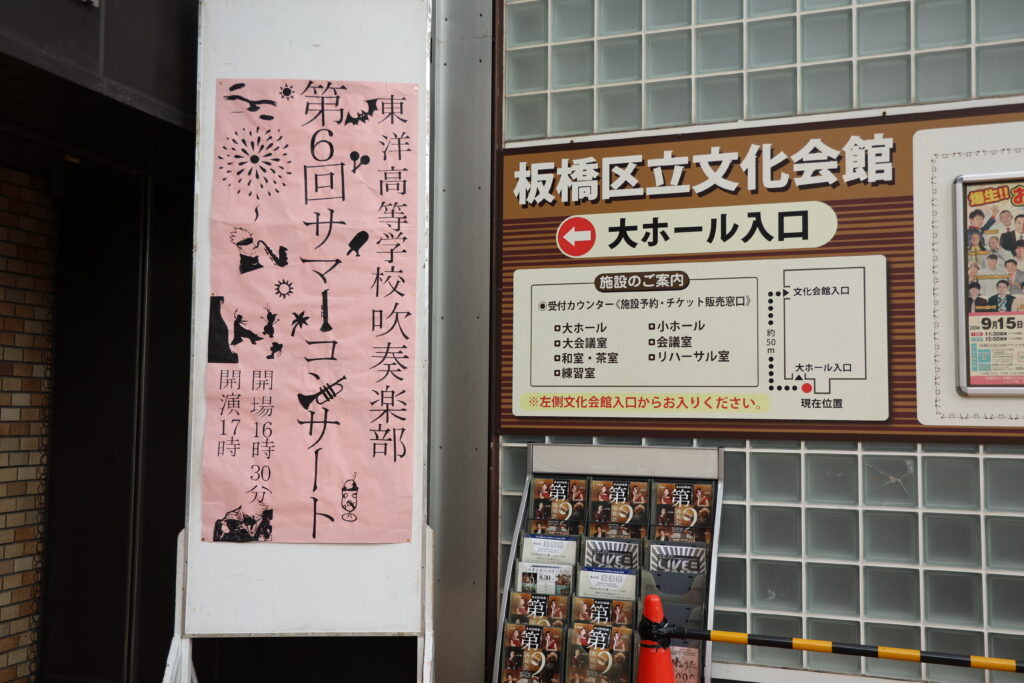 東洋高等学校吹奏楽部
第6回サマーコンサート
開場16時30分
開演17時
板橋区立文化会館
大ホール入口
施設のご案内
◉受付カウンター《施設予約・チケット販売窓口》
大ホール
大会議室
和室・茶室
練習室
小ホール
会議室
リハーサル室
※左側文化会館入口からお入りください。
文化会館入口
約50m
大ホール入口
現在位置
爆生!!
9月15日
11:30
15:00
第9
第9
第9
LIVE
LIVE
8.30
第9
第9
第9
第9